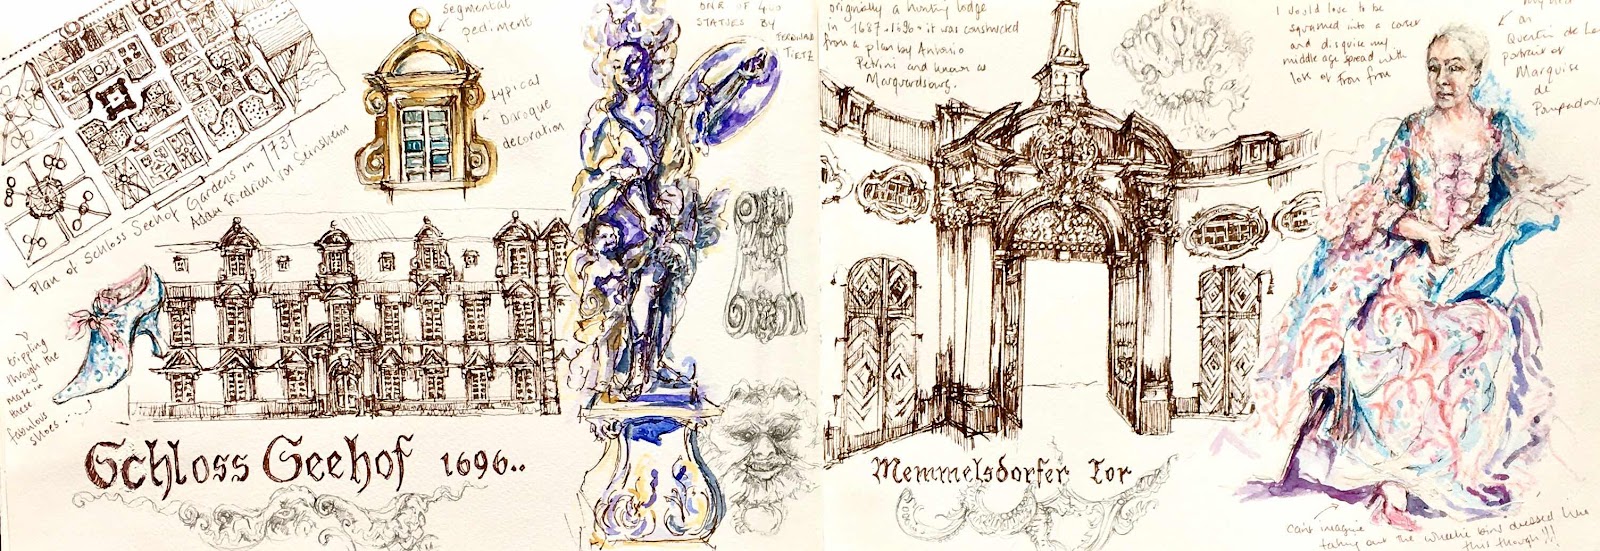 segmental
pediment
typical
Baroque
decoration
Plan of Schloss Seehof Gardens in 1731
Adam Friedrich von Seinsheim
ONE OF 400
STATUES BY
FERDINAND
TIETZ
tripping
through the
maze in
these
fabulous
shoes.....
Schloss Seehof 1696..
originally a hunting lodge
in 1687-1696 - it was constructed
from a plan by Antonio
Petrini and known as
Marquardsburg.
Memmelsdorfer Tor
I would love to be
squashed into a corset
and disguise my
middle age spread with
lots of frou frou
my head
on
Quentin de La
portrait of
Marquise
de
Pompadour
Can't imagine
taking out the wheelie bins dressed like
this though!!!